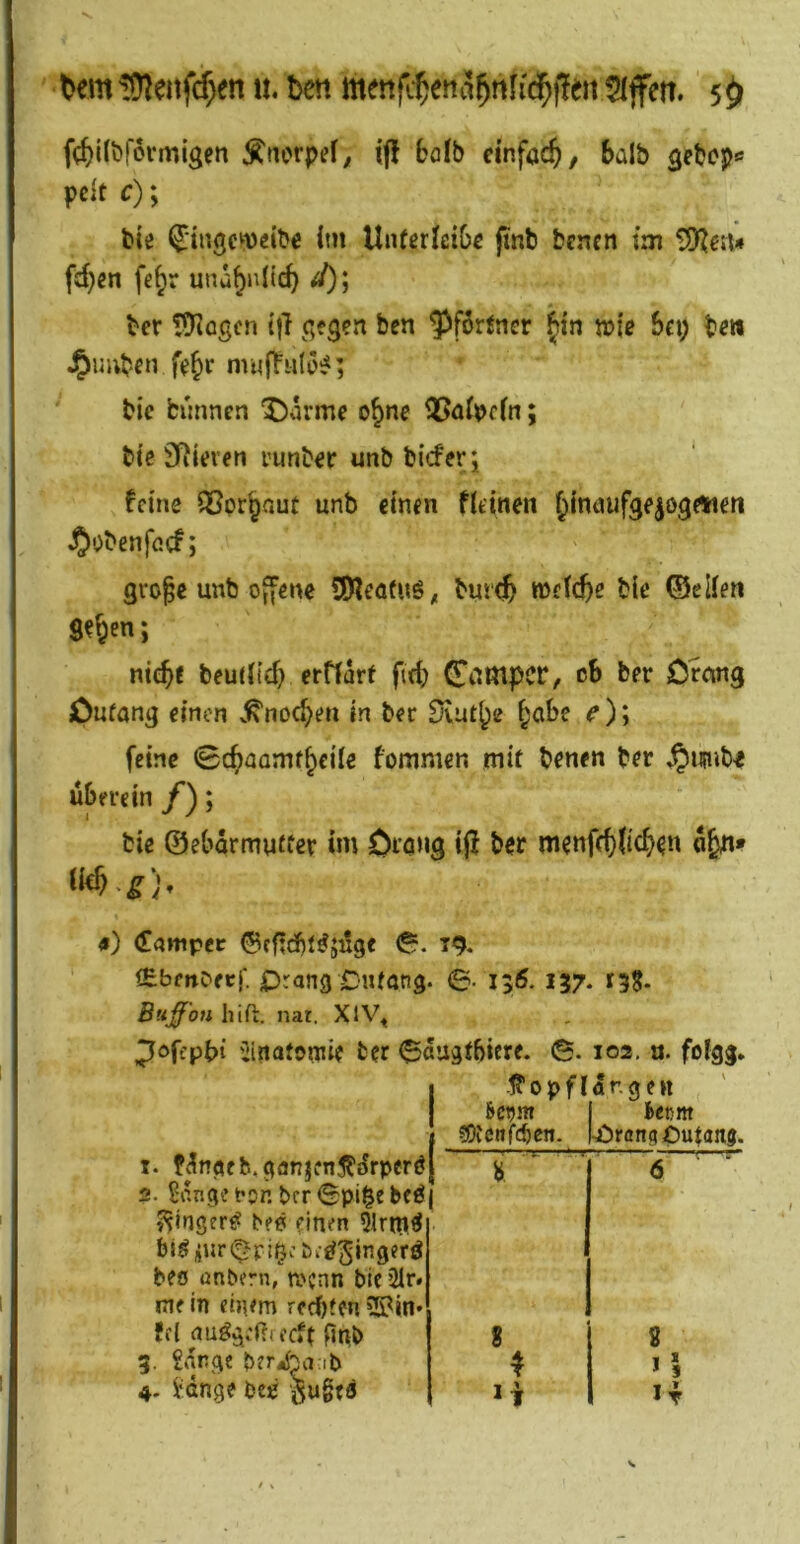 dem Menschen u. den menschenähnlichsten Affen. 59
schildförmigen Knorpel, ist bald einfach, bald gedop⸗
pelt c);
die Eingeweide im Unterleibe sind denen im Men⸗
schen sehr unähnlich d);
der Magen ist gegen den Pförtner hin wie bey den
Hunden sehr muskulös;
die dünnen Därme ohne Valveln;
die Nieren runder und dicker;
keine Vorhaut und einen kleinen hinaufgezogenen
Hodensack;
große und offene Meatus, durch welche die Gellen
gehen;
nicht deutlich erklärt sich Camper, ob der Orang
Outang einen Knochen in der Ruthe habe e);
seine Schaamtheile kommen mit denen der Hunde
überein f);
die Gebärmutter im Orang ist der menschlichen ähn⸗
lich g).
a) Camper Gesichtszüge S. 19.
Ebenders. Orang Outang. S. 136. 137. 138.
Buffon hist. nat. XIV,
Josephi Anatomie der Säugthiere. S. 102. u. folgg.
Kopflängen
beym Menschen. beym Orang Outang.
1. Länge d. ganzen Körpers 8 6
2. Länge von der Spitze des
Fingers des einen Arms
bis zur Spitze des Fingers
des andern, wenn die Ar⸗
me in einem rechten Win⸗
kel ausgestreckt sind 8 8
3. Länge der Hand
4. Länge des Fußes